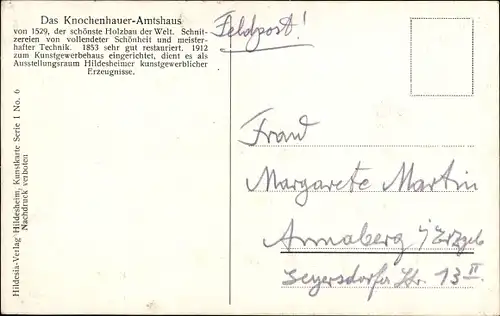 Das Knochenhauer-Amtshaus
von 1529, der schönste Holzbau der Welt. Schnit-
zereien von vollendeter Schönheit und meister-
hafter Technik. 1853 sehr gut restauriert. 1912
zum Kunstgewerbehaus eingerichtet, dient es als
Ausstellungsraum Hildesheimer kunstgewerblicher
Erzeugnisse.
Hildesia-Verlag Hildesheim, Kunstkarte Serie I No. 6
Nachdruck verboten
Feldpost!
Frau
Margarete Martin
Annaberg i/Erzgeb
Geyersdorfer Str. 13 II